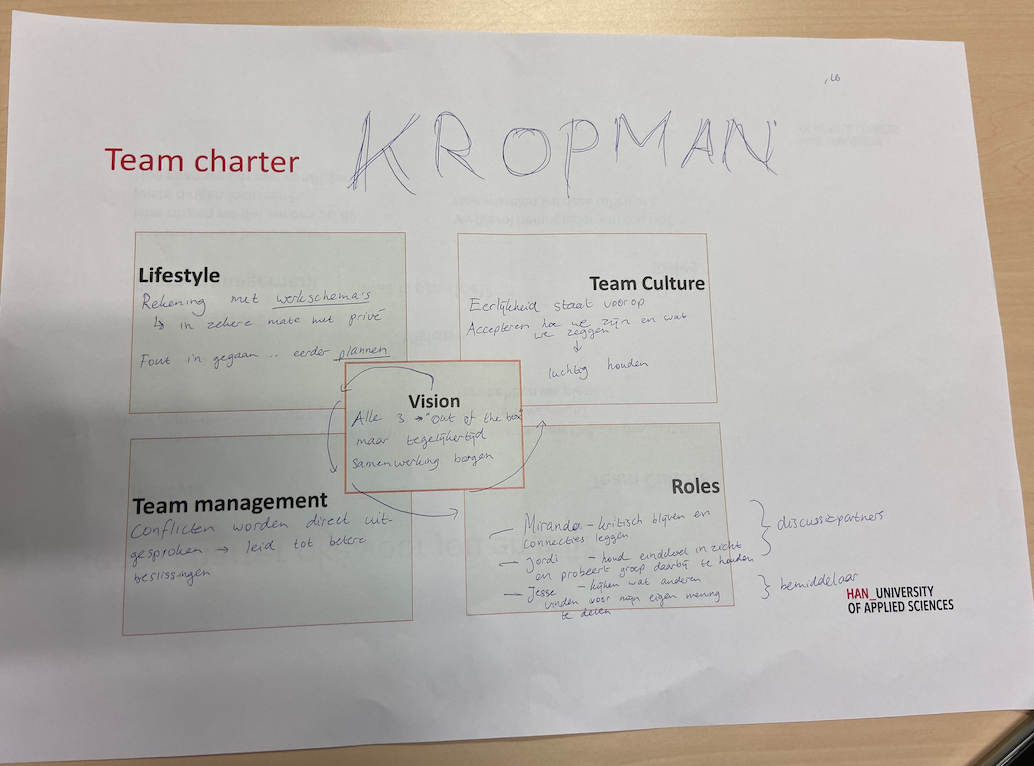 KROPMAN
Team charter
Lifestyle
Rekening met werkschema's
↳ in zekere mate met privé
Fout in gegaan ... eerder plannen
Team Culture
Eerlijkheid staat voorop
Accepteren hoe we zijn en wat
we zeggen
↓
luchtig houden
Vision
Alle 3 → "out of the box"
maar tegelijkertijd
samenwerking borgen
Team management
Conflicten worden direct uit-
gesproken → leid tot betere
beslissingen
Roles
— Miranda – kritisch blijven en
connecties leggen
— Jordi – houd einddoel in zicht
en probeert groep daarbij te houden
} discussiepartners
— Jesse – kijken wat anderen
vinden voor mijn eigen mening
te delen
} bemiddelaar
HAN_UNIVERSITY
OF APPLIED SCIENCES